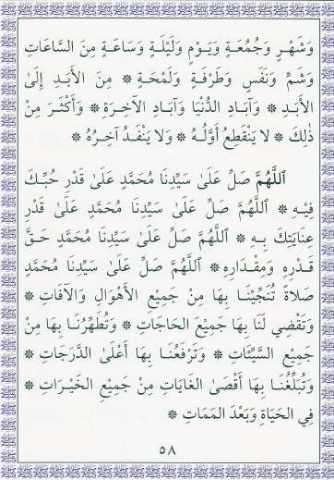 وَشَهْرٍ وَجُمُعَةٍ وَيَوْمٍ وَلَيْلَةٍ وَسَاعَةٍ مِنَ السَّاعَاتِ
وَشَمٍّ وَنَفَسٍ وَطَرْفَةٍ وَلَمْحَةٍ ❁ مِنَ الأَبَدِ إِلَى
الأَبَدِ ❁ وَآبَادِ الدُّنْيَا وَآبَادِ الآخِرَةِ ❁ وَأَكْثَرَ مِنْ
ذٰلِكَ ❁ لَا يَنْقَطِعُ أَوَّلُهُ ❁ وَلَا يَنْفَدُ آخِرُهُ ❁
اَللّٰهُمَّ صَلِّ عَلَىٰ سَيِّدِنَا مُحَمَّدٍ عَلَىٰ قَدْرِ حُبِّكَ
فِيْهِ ❁ اَللّٰهُمَّ صَلِّ عَلَىٰ سَيِّدِنَا مُحَمَّدٍ عَلَىٰ قَدْرِ
عِنَايَتِكَ بِهِ ❁ اَللّٰهُمَّ صَلِّ عَلَىٰ سَيِّدِنَا مُحَمَّدٍ حَقَّ
قَدْرِهِ وَمِقْدَارِهِ ❁ اَللّٰهُمَّ صَلِّ عَلَىٰ سَيِّدِنَا مُحَمَّدٍ
صَلاَةً تُنَجِّيْنَا بِهَا مِنْ جَمِيْعِ الأَهْوَالِ وَالآفَاتِ ❁
وَتَقْضِي لَنَا بِهَا جَمِيْعَ الحَاجَاتِ ❁ وَتُطَهِّرُنَا بِهَا مِنْ
جَمِيْعِ السَّيِّئَاتِ ❁ وَتَرْفَعُنَا بِهَا أَعْلَى الدَّرَجَاتِ ❁
وَتُبَلِّغُنَا بِهَا أَقْصَى الغَايَاتِ مِنْ جَمِيْعِ الخَيْرَاتِ ❁
فِي الحَيَاةِ وَبَعْدَ المَمَاتِ ❁
٥٨